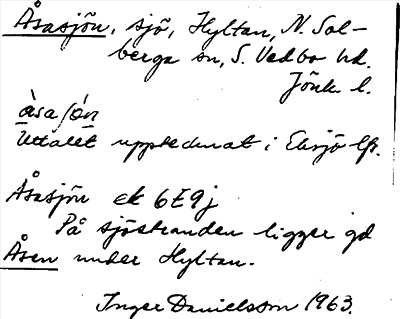 Åsasjön, sjö, Hyltan, N. Sol-
berga sn, S. Vedbo hd.
Jönk l.
Uttalet upptecknat i Eksjö lfs.
Åsasjön ek 6E9j
På sjöstranden ligger gd
Åsen under Hyltan.
Inger Danielsson 1963.